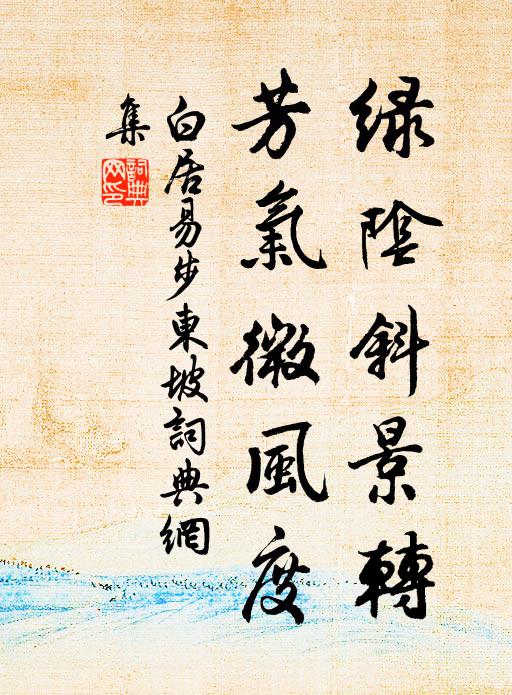 绿陰斜景轉
芳氣微風度
白居易步東坡詞典網
集
詞典
网印